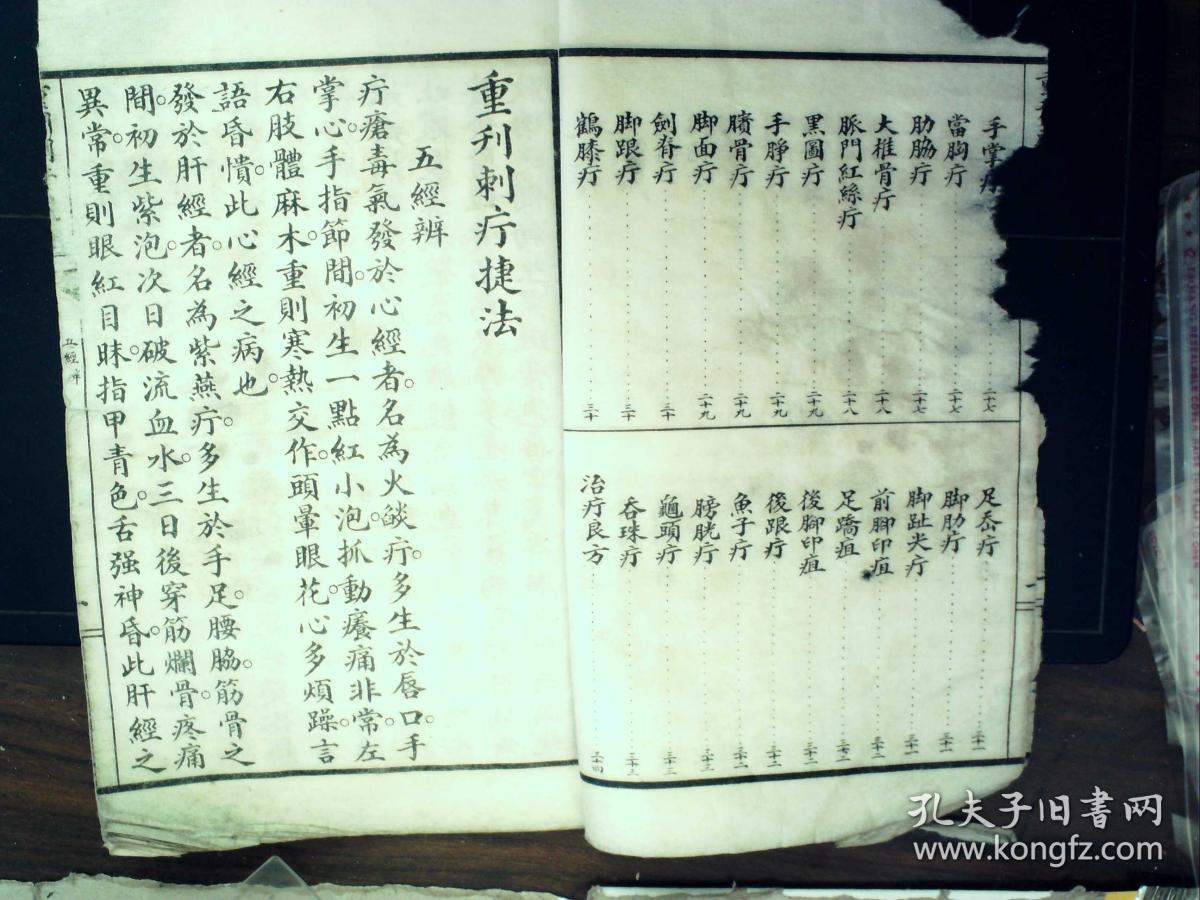 手掌疔 二十七
當胸疔 二十七
肋脇疔 二十七
大椎骨疔 二十八
脈門紅絲疔 二十八
黑圖疔 二十九
手脖疔 二十九
臏骨疔 二十九
脚面疔 二十九
劍脊疔 三十
脚跟疔 三十
鶴膝疔 三十
足岙疔 三十一
脚肋疔 三十一
脚趾尖疔 三十一
前腳印疽 三十二
足蹻疽 三十二
後腳印疽 三十二
後跟疔 三十二
魚子疔 三十二
膀胱疔 三十三
龜頭疔 三十三
吞珠疔 三十三
治疔良方 三十四
重刋刺疔捷法
五經辨
疔瘡毒氣發於心經者。名為火燄疔。多生於唇口。手
掌心。手指節間。初生一點紅小泡。抓動癢痛非常。左
右肢體麻木。重則寒熱交作。頭暈眼花。心多煩躁。言
語昏憒。此心經之病也
發於肝經者。名為紫燕疔。多生於手足。腰脇。筋骨之
間。初生紫泡。次日破流血水。三日後穿筋爛骨。疼痛
異常。重則眼紅目昧。指甲青色。舌强神昏。此肝經之
五經辨
孔夫子旧书网
www.kongfz.com